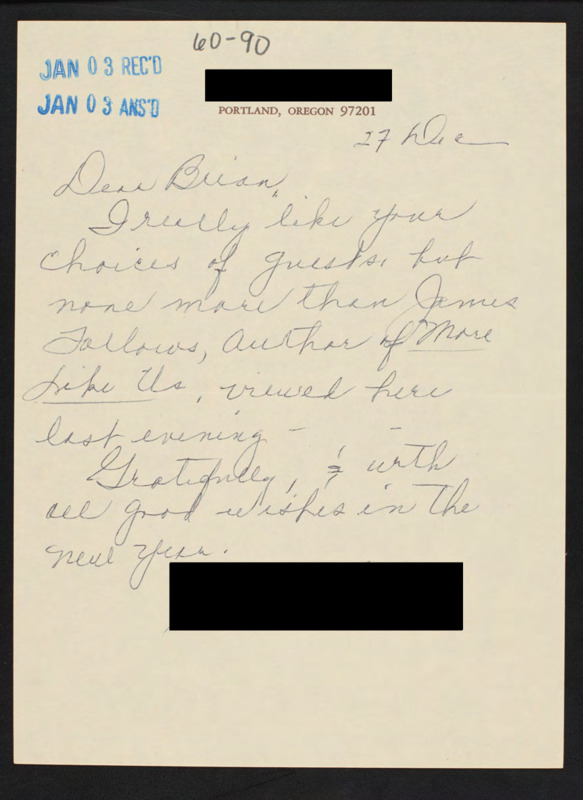 60-90
JAN 03 REC'D
JAN 03 ANS'D
PORTLAND, OREGON 97201
27 Dec
Dear Brian,
I really like your
choices of guests, but
none more than James
Fallows, author of More
Like Us, viewed here
last evening -
Gratefully, & with
all good wishes in the
New Year.